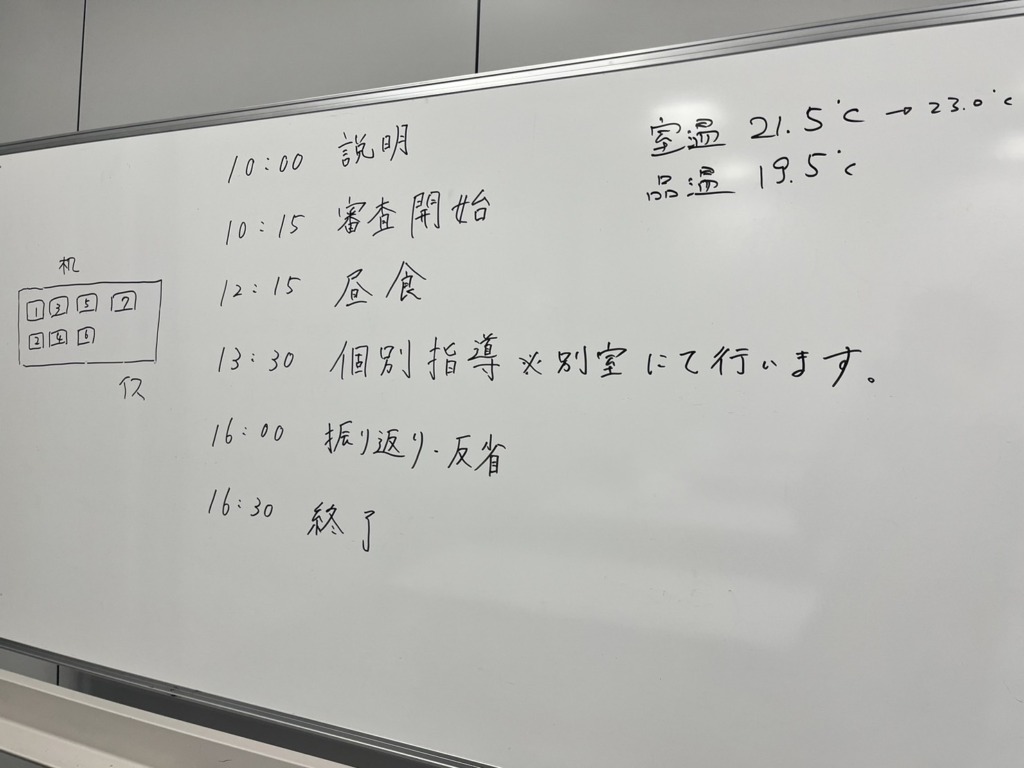 室温 21.5℃ → 23.0℃
品温 19.5℃
10:00 説明
10:15 審査開始
12:15 昼食
13:30 個別指導 ※別室にて行います。
16:00 振り返り・反省
16:30 終了
机
1 3 5 7
2 4 6
イス